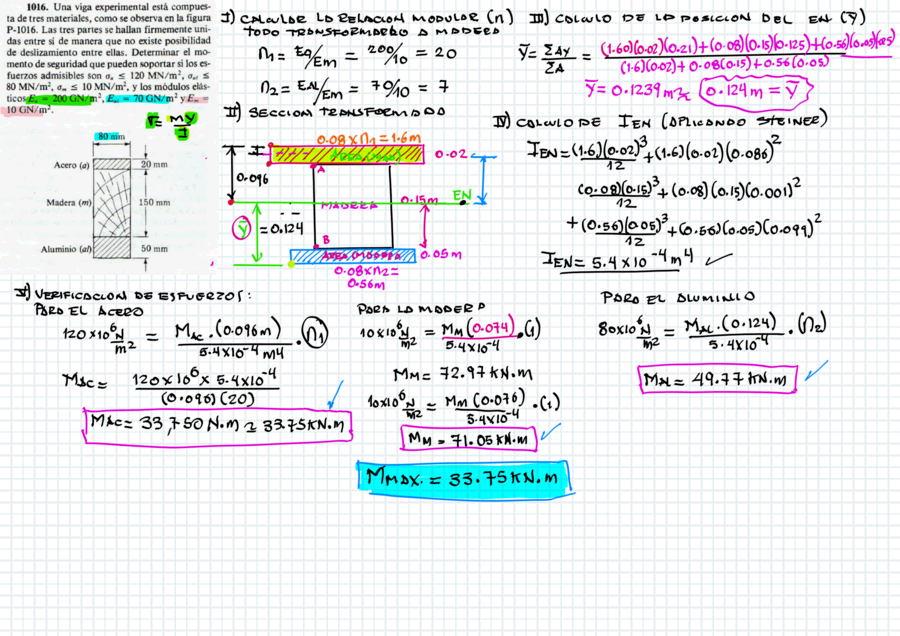 1016. Una viga experimental está compues-
ta de tres materiales, como se observa en la figura
P-1016. Las tres partes se hallan firmemente uni-
das entre sí de manera que no existe posibilidad
de deslizamiento entre ellas. Determinar el mo-
mento de seguridad que pueden soportar si los es-
fuerzos admisibles son σa ≤ 120 MN/m², σal ≤
80 MN/m², σm ≤ 10 MN/m², y los módulos elás-
ticos Ea = 200 GN/m², Eal = 70 GN/m² y Em =
10 GN/m².
σ = My/I
80 mm
Acero (a)
20 mm
Madera (m)
150 mm
Aluminio (al)
50 mm
I) CALCULAR LA RELACION MODULAR (n)
TODO TRANSFORMARLO A MADERA
n1 = Ea/Em = 200/10 = 20
n2 = EAl/Em = 70/10 = 7
II) SECCION TRANSFORMADA
0.08 x n1 = 1.6m
0.02
A
0.096
MADERA
0.15m
EN
ȳ = 0.124
B
0.05m
0.08 x n2 =
0.56m
III) CALCULO DE LA POSICION DEL EN (ȳ)
ȳ = ΣAy/ΣA = (1.60)(0.02)(0.21)+(0.08)(0.15)(0.125)+(0.56)(0.05)(0.025)/(1.6)(0.02)+0.08(0.15)+0.56(0.05)
ȳ = 0.1239 m ≈ 0.124 m = ȳ
IV) CALCULO DE IEN (APLICANDO STEINER)
IEN = (1.6)(0.02)³/12 + (1.6)(0.02)(0.086)²
(0.08)(0.15)³/12 + (0.08)(0.15)(0.001)²
+ (0.56)(0.05)³/12 + (0.56)(0.05)(0.099)²
IEN = 5.4 x 10⁻⁴ m⁴
V) VERIFICACION DE ESFUERZOS:
PARA EL ACERO
120 x 10⁶ N/m² = MAC.(0.096m)/5.4x10⁻⁴ m4 . (n1)
MAC = 120 x 10⁶ x 5.4 x 10⁻⁴/(0.096)(20)
MAC = 33,750 N.m ≈ 33.75 KN.m
PARA LA MADERA
10x10⁶ N/m² = MM (0.074)/5.4x10⁻⁴ .(1)
MM = 72.97 KN.m
10x10⁶ N/m² = MM (0.076)/5.4x10⁻⁴ .(1)
MM = 71.05 KN.m
PARA EL ALUMINIO
80x10⁶ N/m² = MAL.(0.124)/5.4x10⁻⁴ .(n2)
MAL = 49.77 KN.m
MMAX. = 33.75 KN.m